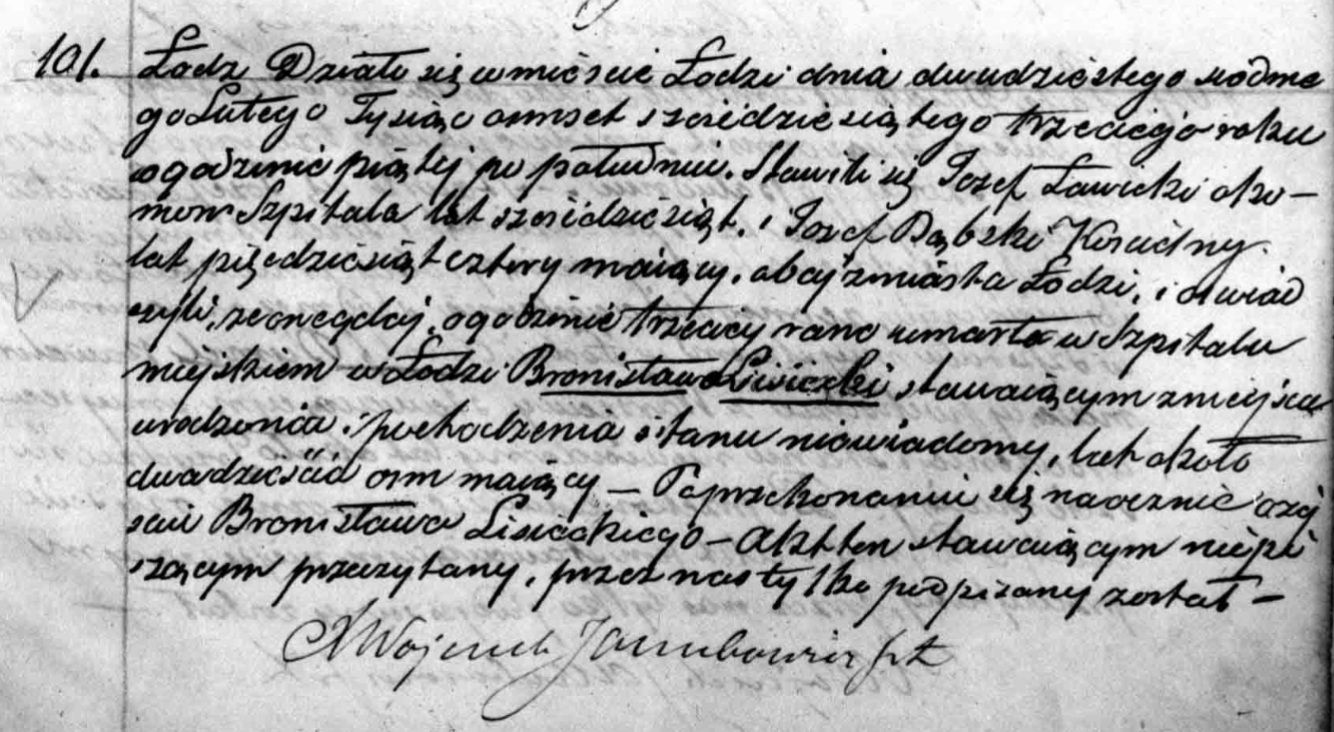 101. Łodz Działo się w mieście Łodzi dnia dwudziestego siódme
go Lutego Tysiąc ośmset sześćdziesiątego trzeciego roku
o godzinie piątej po południu. Stawili się Jozef Ławicki oko-
mon Szpitala lat sześćdziesiąt, i Jozef Dąbski Kościelny
lat pięćdziesiąt cztery maiący, obaj z miasta Łodzi, i oświad
czyli, że onegdaj, o godzinie trzeciej rano umarł w Szpitalu
miejskiem w Łodzi Bronisław Lisiecki stawaiącym z miejsca
urodzenia i pochodzenia i stanu niewiadomy, lat około
dwadzieścia ośm maiący — Po przekonaniu się naocznie o zej
ściu Bronisława Lisieckiego — Akt ten stawaiącym niepi
szącym przeczytany, przez nas tylko podpisany został —
X Wojciech